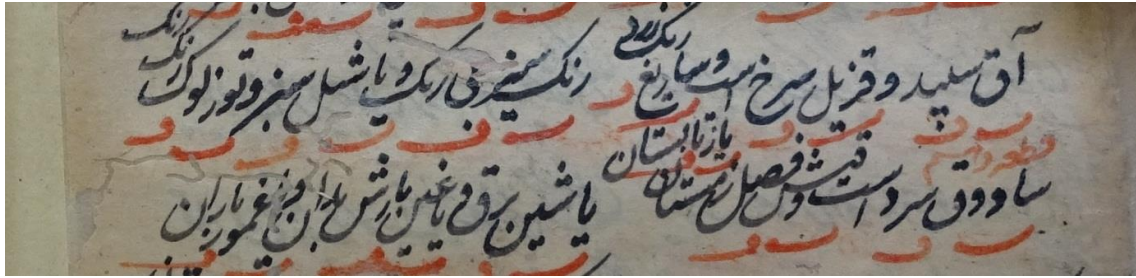 آق سپید و قزیل سرخ است و ساریغ رنگ زرد رنگ سبز بی رنگ و یاشیل سبز و توز نوک رنگ
ساووق سرد است قیش و فصل زمستان یاز تابستان یاشین برق و یاغین بارش باران و یغمور باران